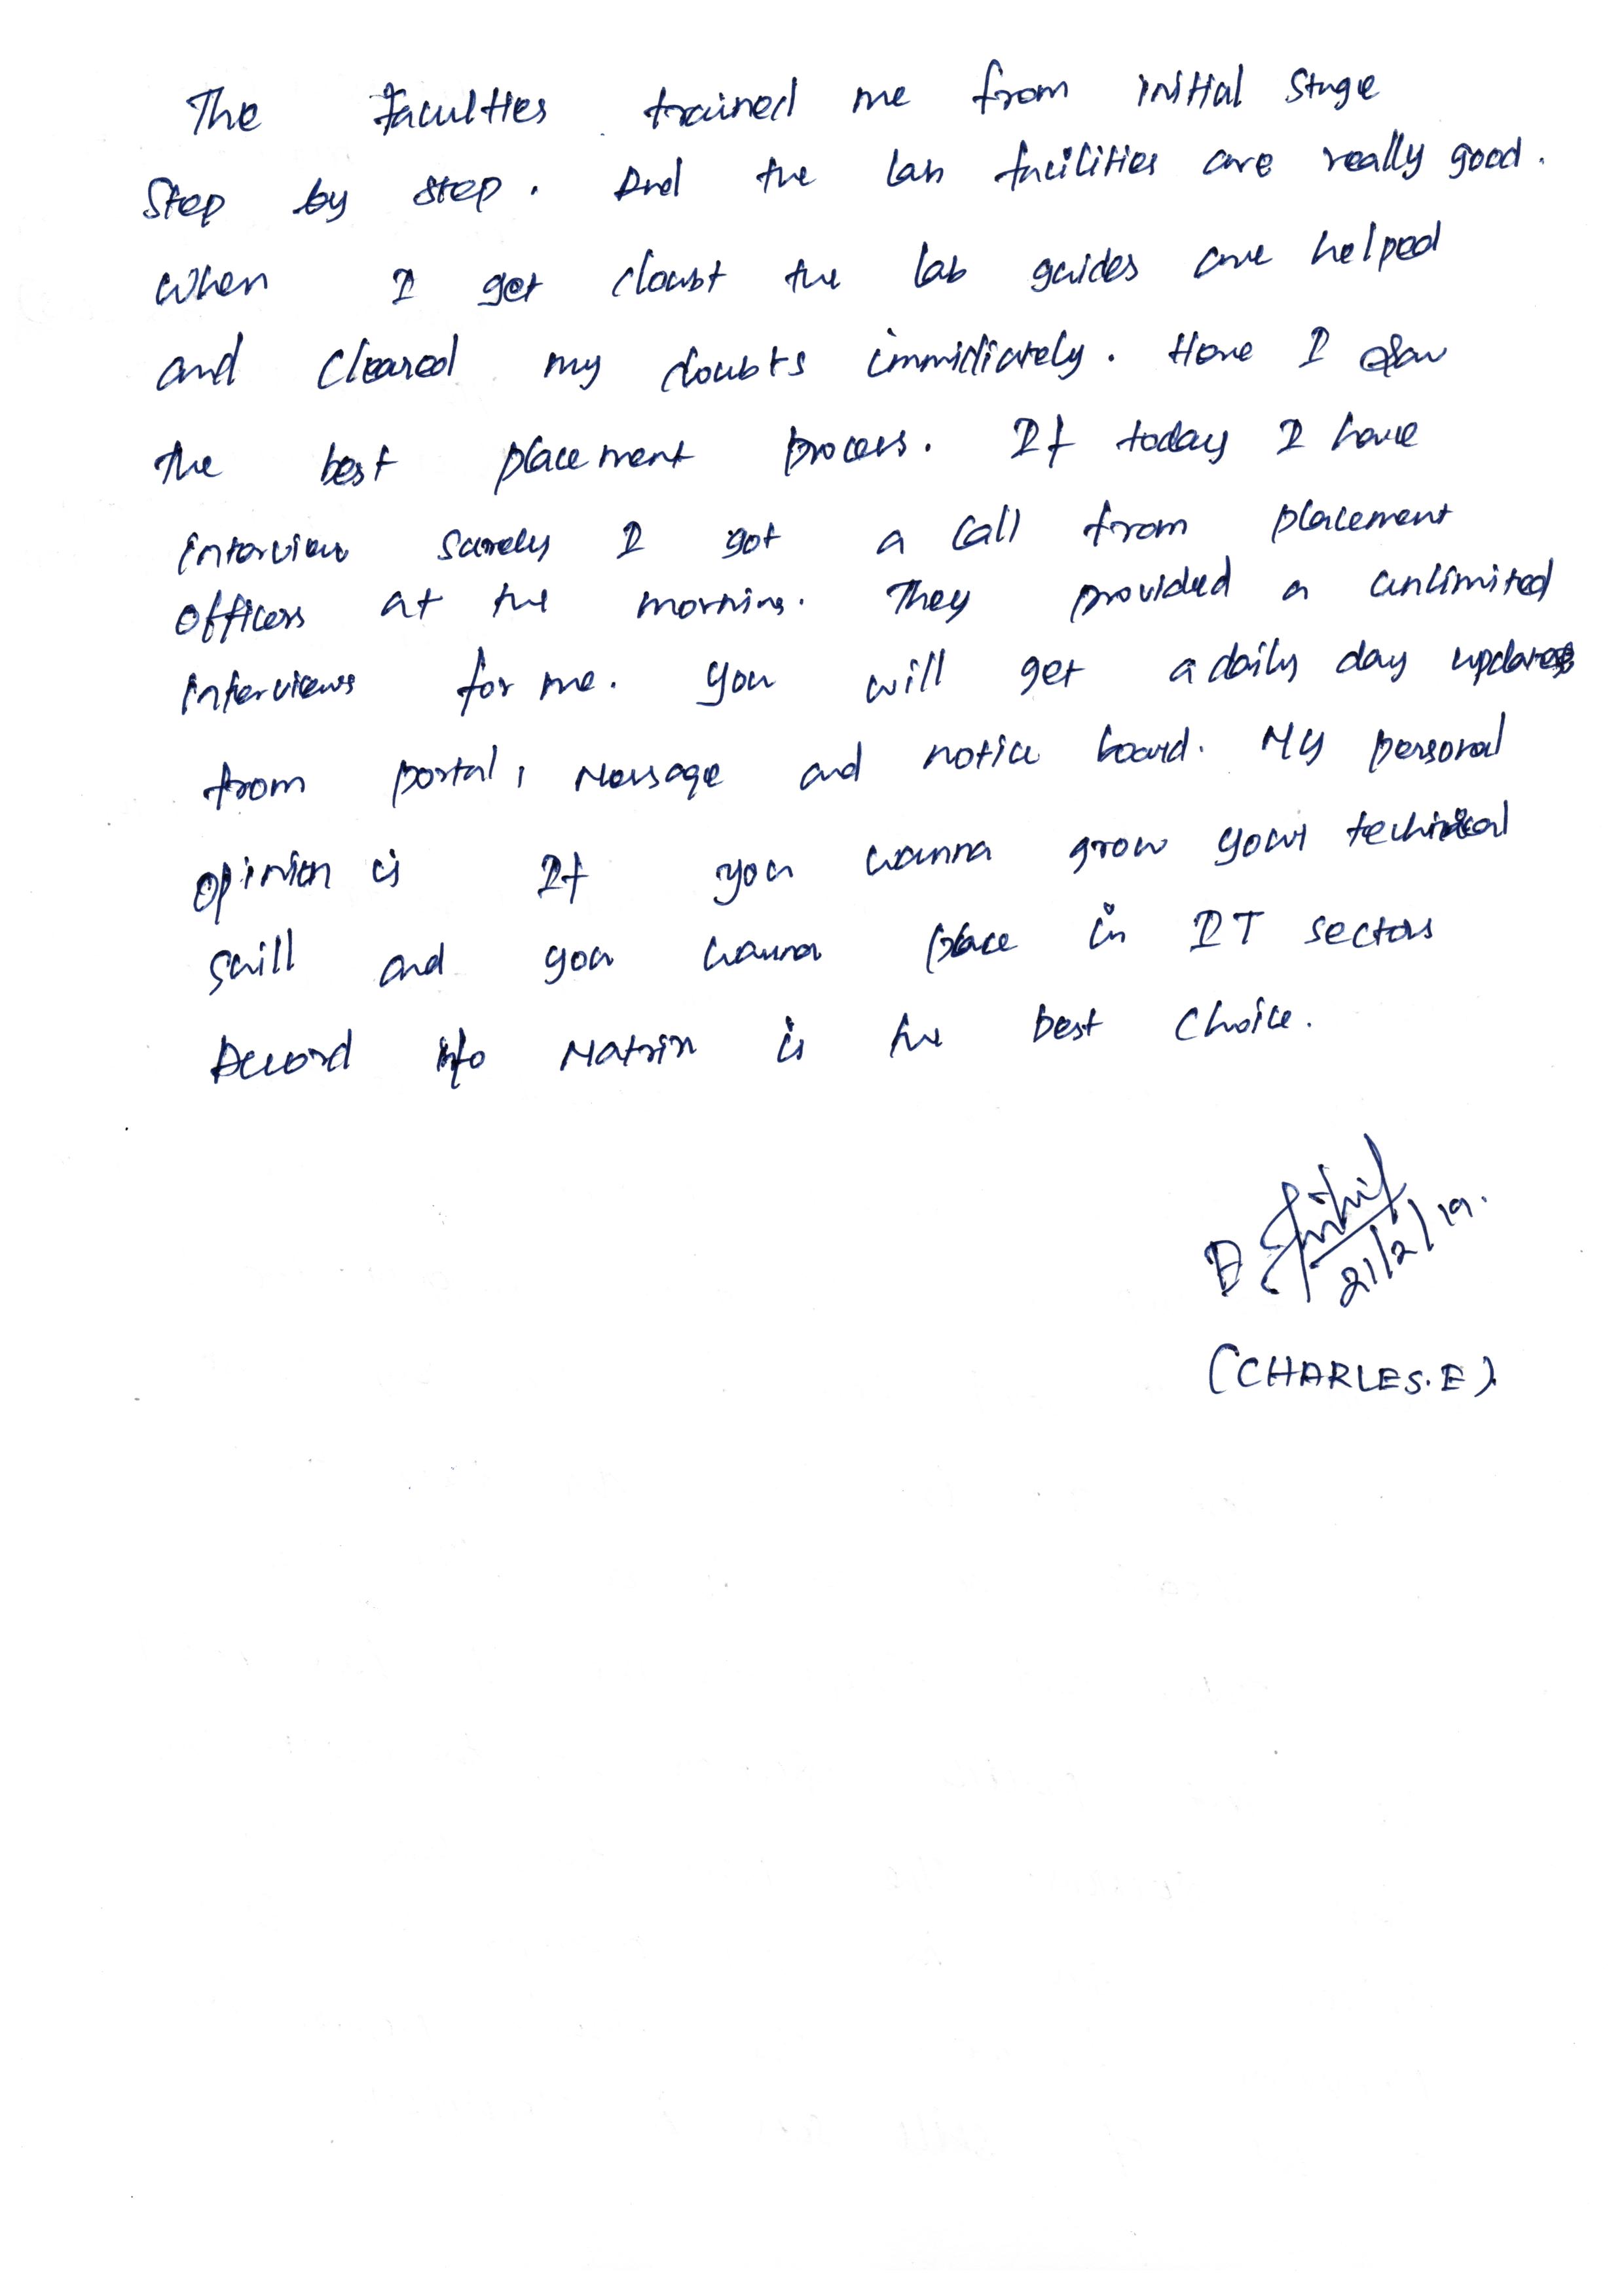 The faculties trained me from initial stage
Step by step. And the lab facilities are really good.
When I get doubt the lab guides are helped
and cleared my doubts immidiately. Here I saw
the best placement process. If today I have
interview surely I got a call from placement
officers at the morning. They provided a unlimited
interviews for me. You will get a daily day updates
from portal, Message and notice board. My personal
opinion is If you wanna grow your technical
skill and you wanna place in IT sectors
Accord info Matrix is the best choice.
21/2/19.
(CHARLES.E).